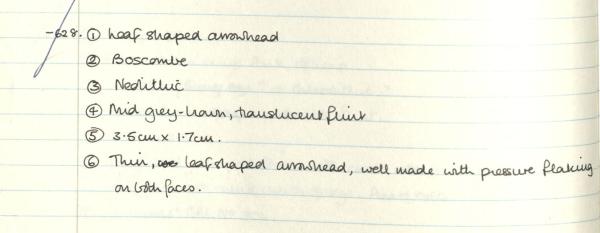 -628. ① Leaf shaped arrowhead
② Boscombe
③ Neolithic
④ Mid grey-brown, translucent flint
⑤ 3.5cm x 1.7cm.
⑥ Thin, leaf shaped arrowhead, well made with pressure flaking
on both faces.